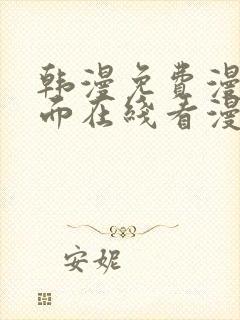 韩漫免费漫
而在线看漫
安妮